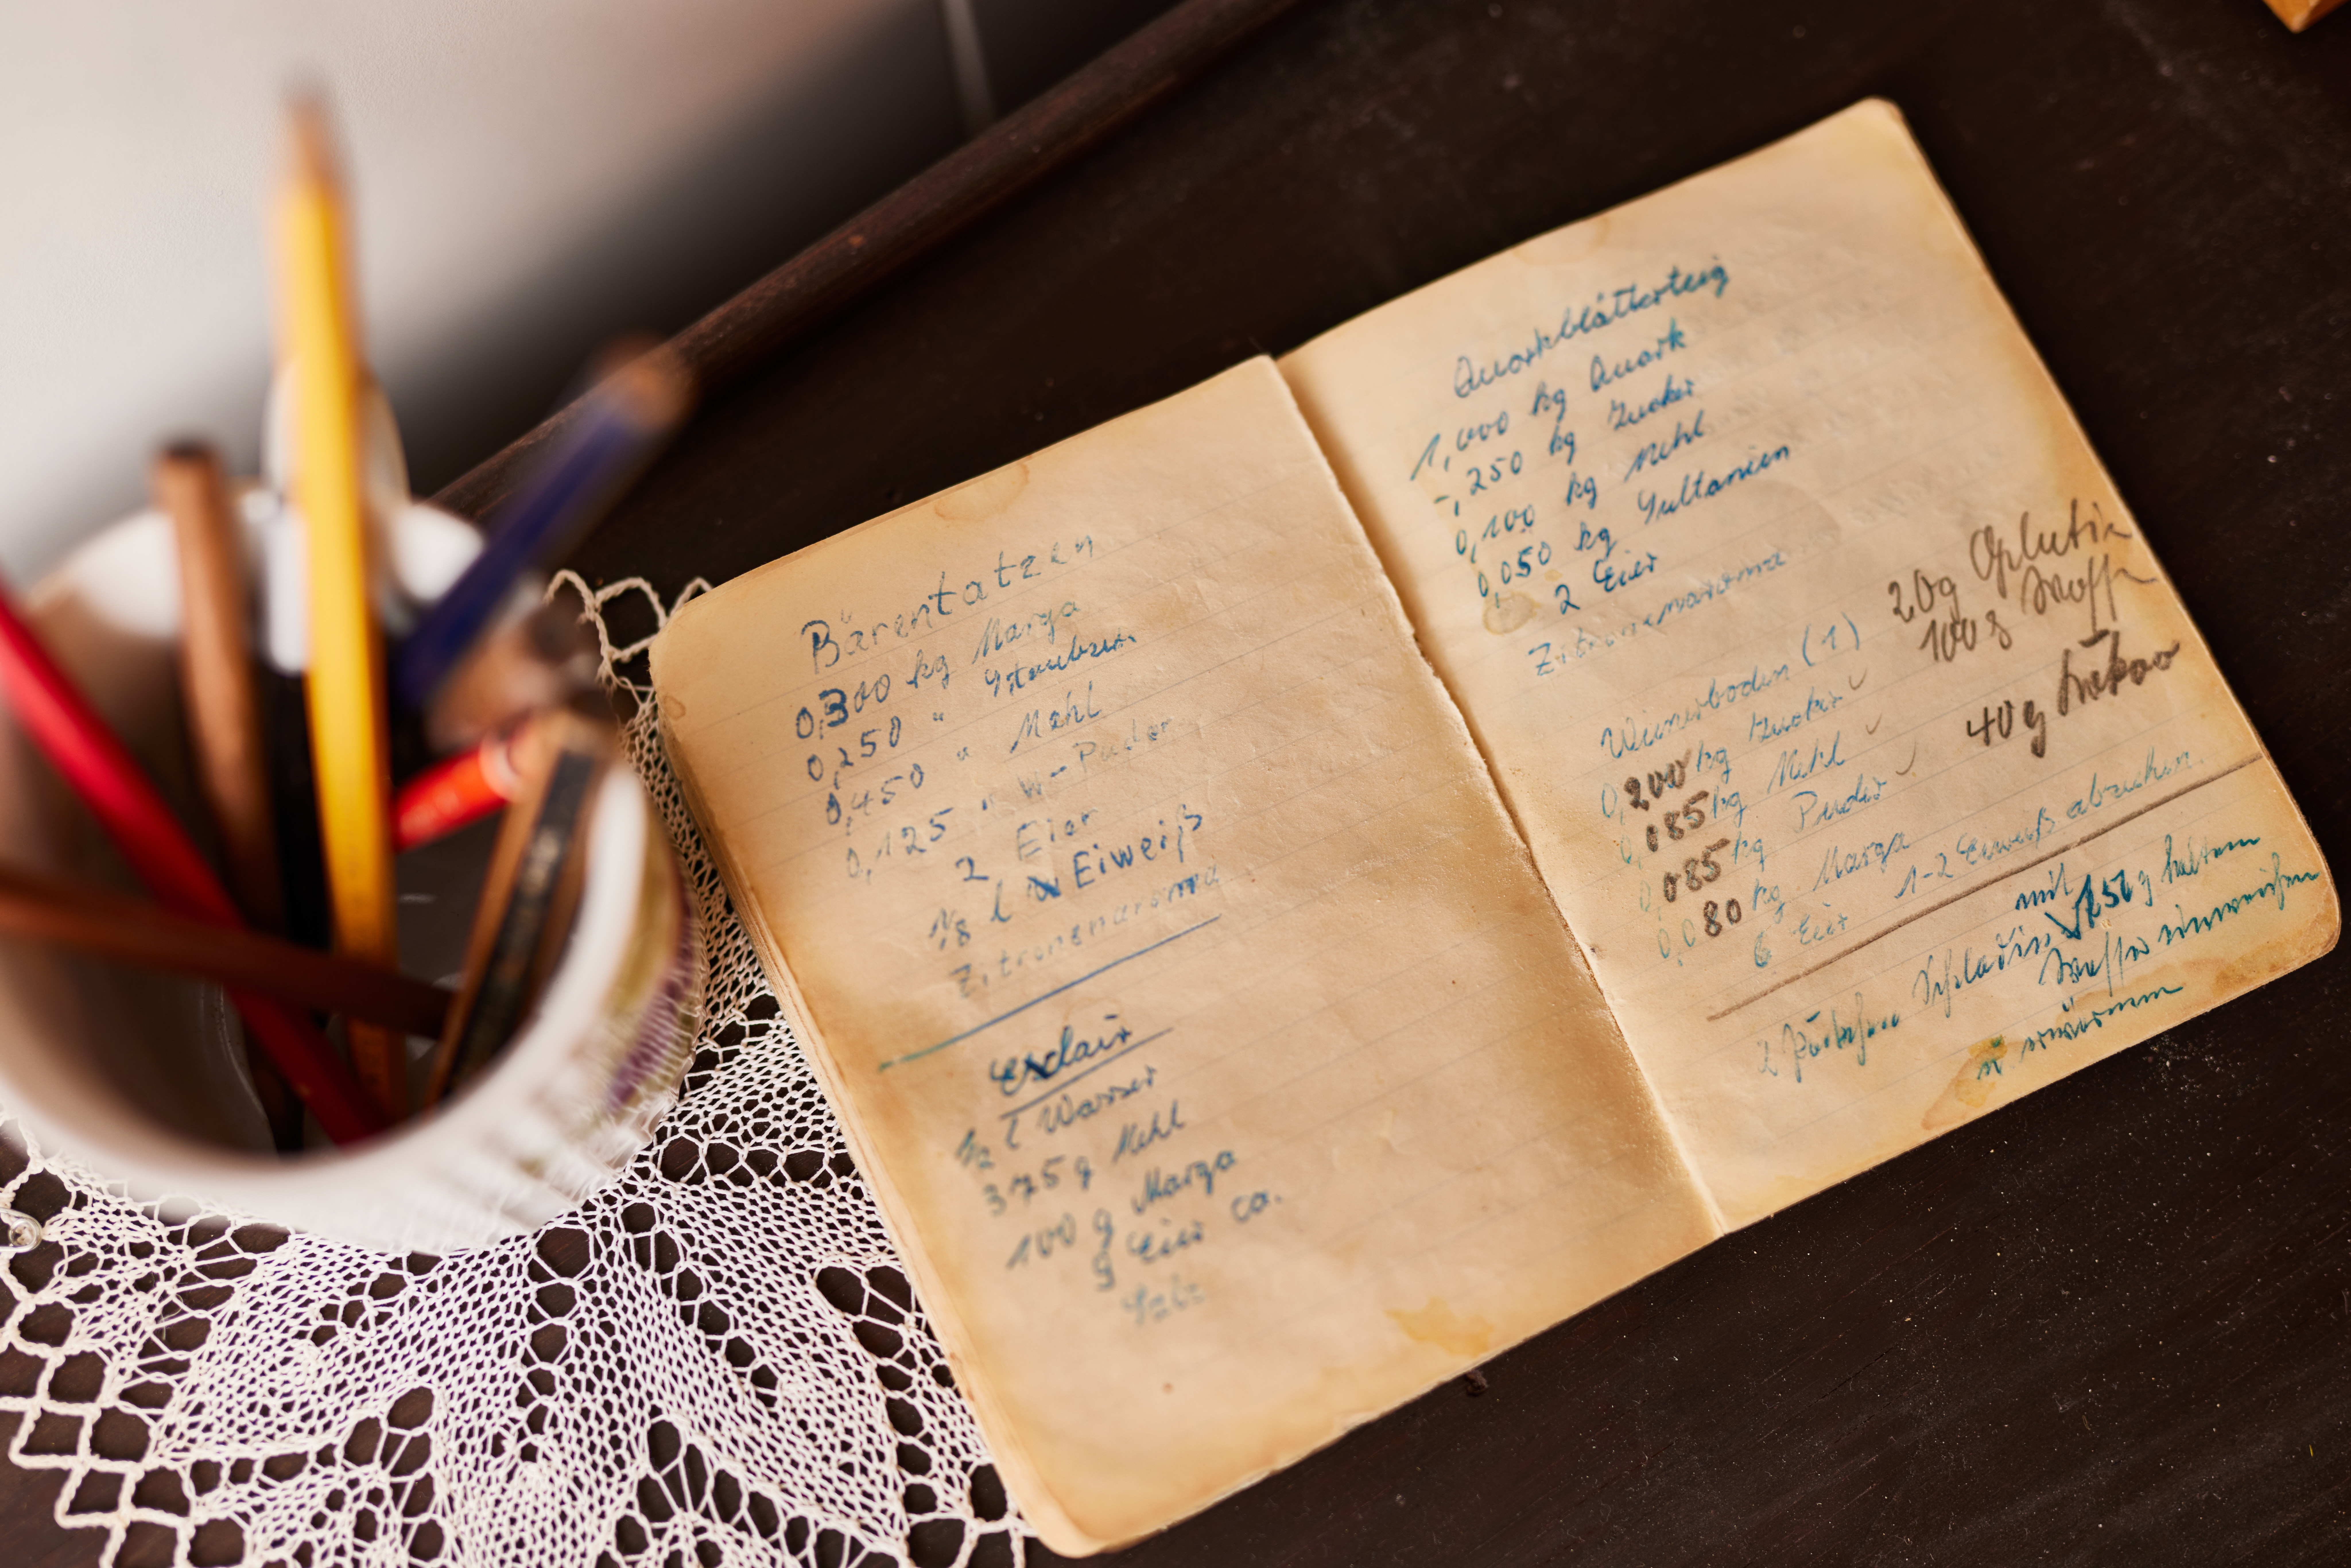 Bärentatzen
0,300 kg Marga
0,250 " Staubzu.
0,450 " Mehl
0,125 " W-Puder
2 Eier
1/8 l Eiweiß
Zitronenaroma
Exclair
1/2 l Wasser
375 g Mehl
100 g Marga
9 Eier ca.
Salz
Quarkblätterteig
1,000 kg Quark
-,250 kg Zucker
0,100 kg Mehl
0,050 kg Sultaninen
2 Eier
Zitronenaroma
Wienerboden (1)
0,200 kg Zucker
0,085 kg Mehl
0,085 kg Puder
0,080 kg. Marga
6 Eier 1-2 Eiweiß
20g
100g Wasser
40g Kakao
mit
2 Päckchen 250 g kaltem
Wasser einweichen
u erwärmen